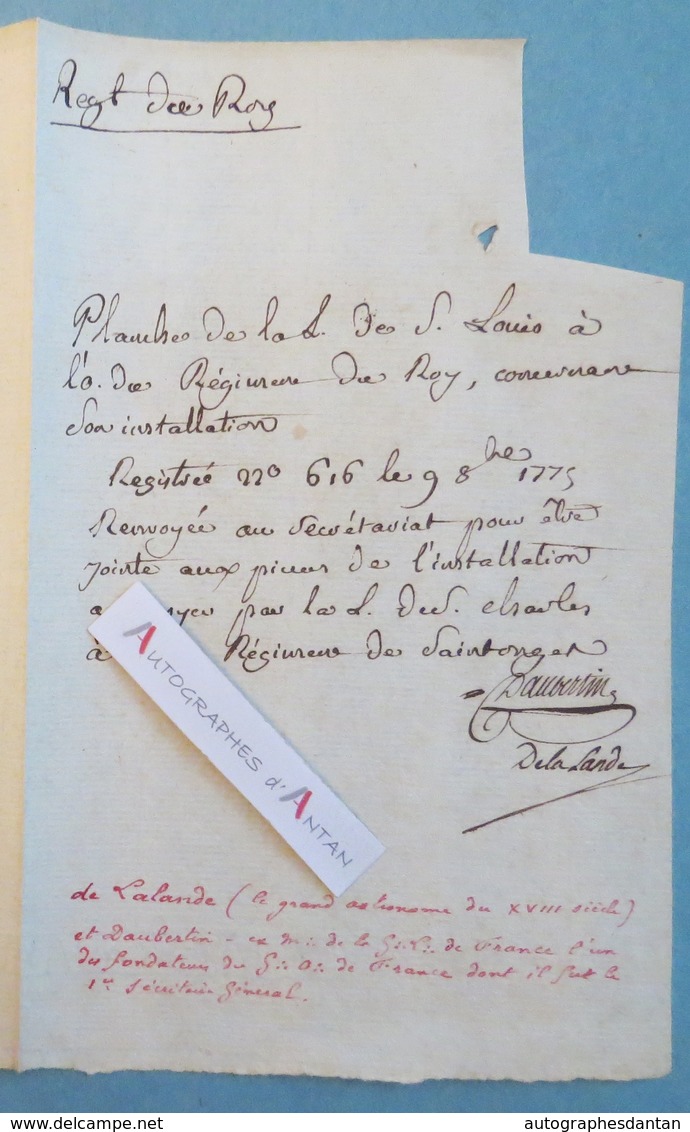 Regt du Roy
Planche de la L. de S. Louis à
l'o. du Régiment du Roy, concernant
son installation
Registrée n° 616 le 9 8bre 1775
Renvoyée au Secrétariat pour être
jointe aux pièces de l'installation
par la L. de S. Charles
à Régiment de Saintonge
Daubertin
De la Lande
AUTOGRAPHES d'ANTAN
de Lalande (le grand astronome du XVIII siècle)
et Daubertin - ex m∴ de la G∴ L∴ de France l'un
des fondateurs du G∴ O∴ de France dont il fut le
1er Secrétaire Général.
www.delcampe.net
autographesdantan